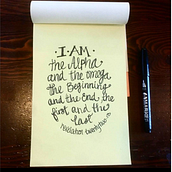 ·I·AM·
the Alpha
and the omega
the Beginning
and the End, the
first and the
last
revelation twenty two:13